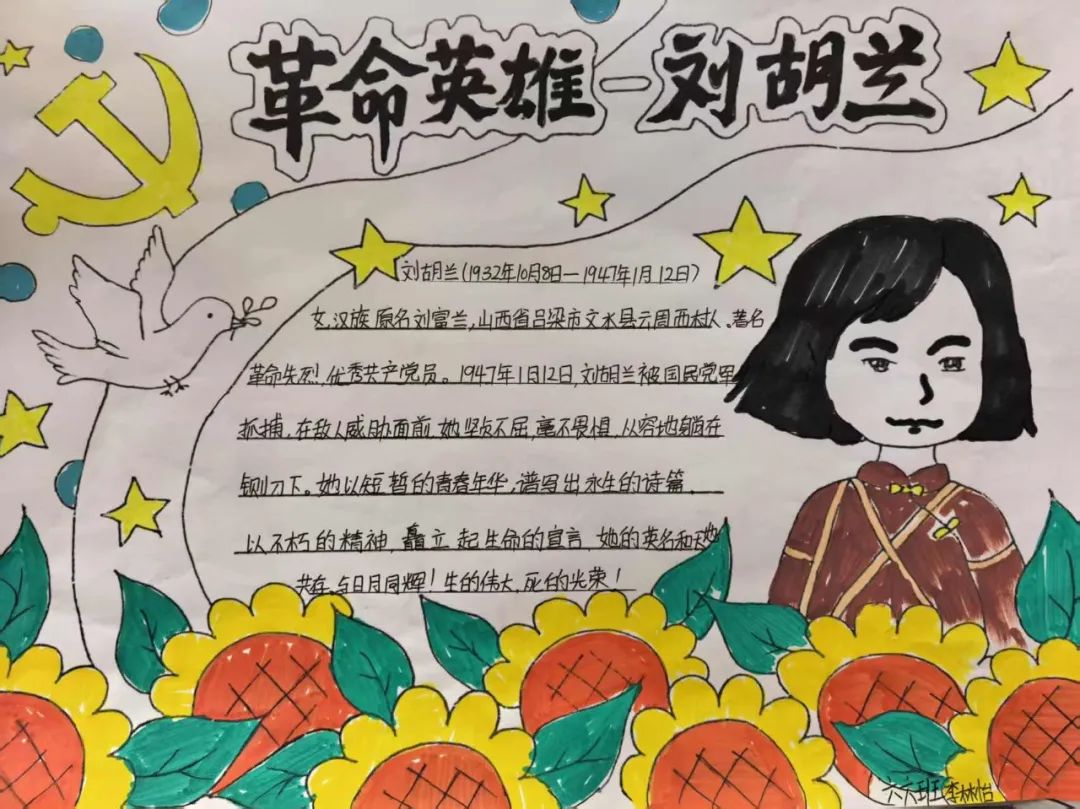 革命英雄—刘胡兰
刘胡兰(1932年10月8日—1947年1月12日)
女,汉族,原名刘富兰,山西省吕梁市文水县云周西村人。著名
革命先烈,优秀共产党员。1947年1月12日,刘胡兰被国民党军
抓捕,在敌人威胁面前,她坚贞不屈,毫不畏惧,从容地躺在
铡刀下。她以短暂的青春年华,谱写出永生的诗篇,
以不朽的精神,矗立起生命的宣言,她的英名和天地
共存,与日月同辉!生的伟大,死的光荣!
六六班 李林怡